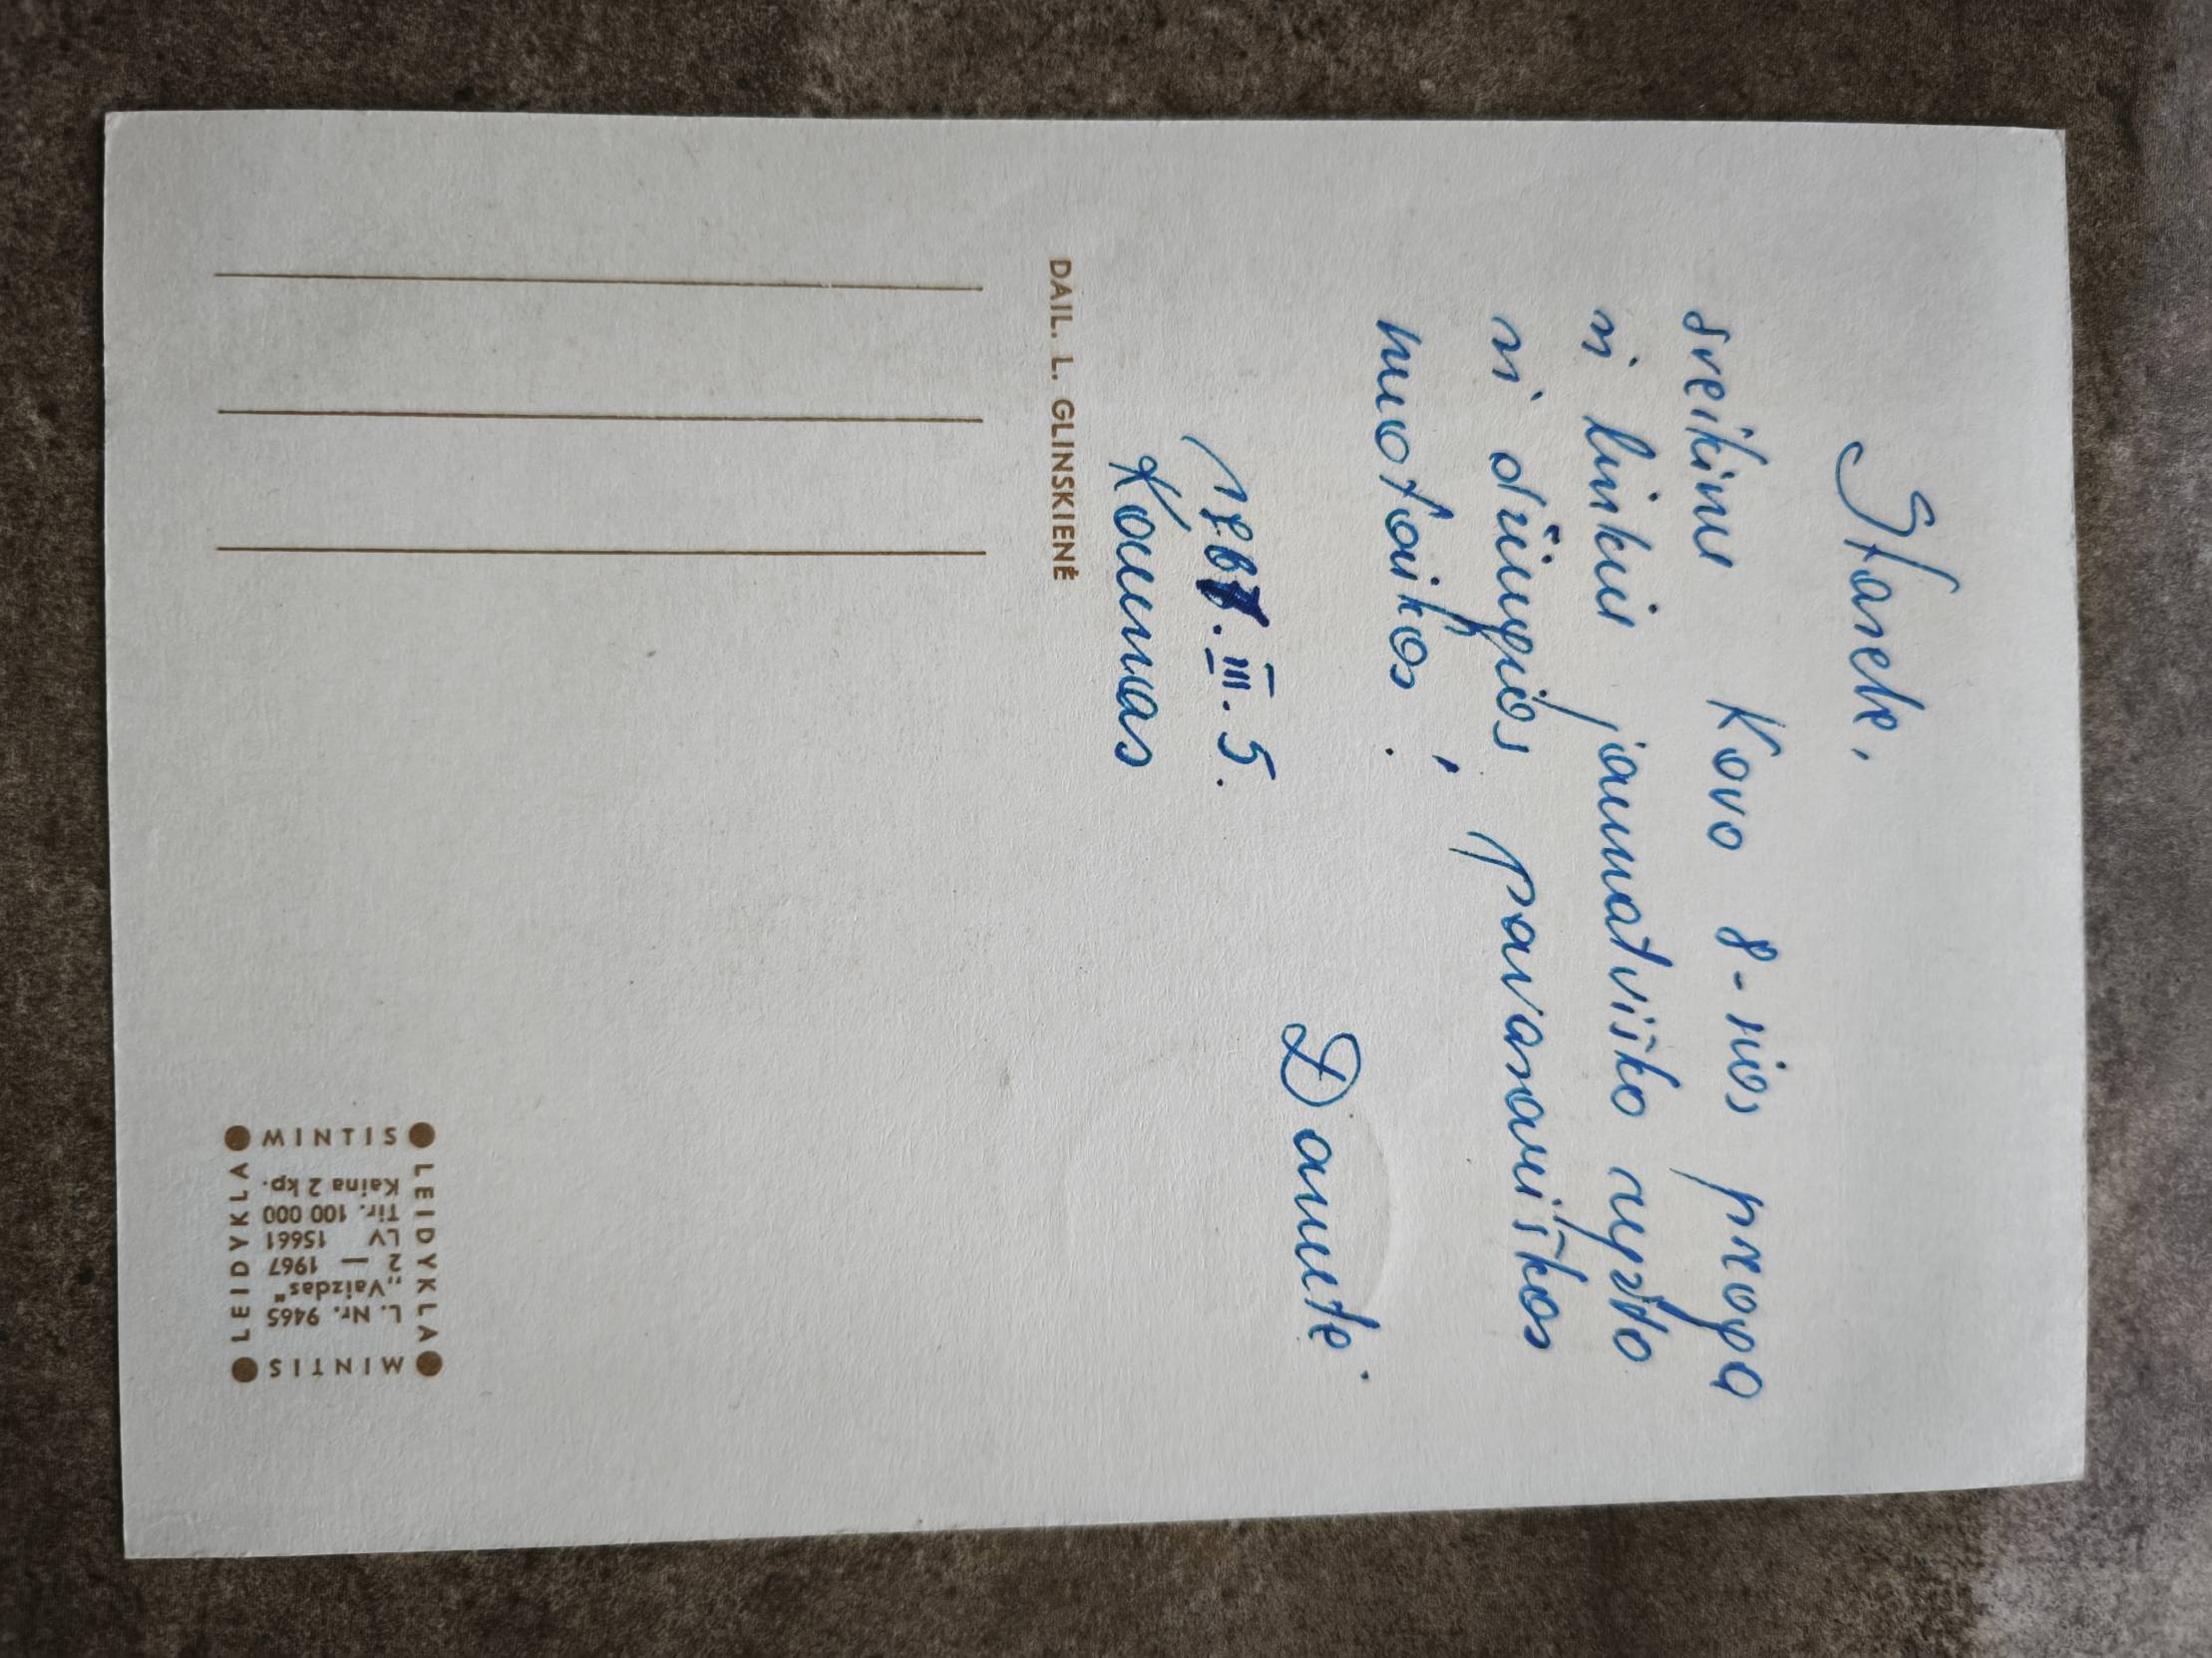 Stasele,
sveikinu Kovo 8-sios proga
ir linkiu jaunatviško ryžto
ir džiugios, pavasariškos
nuotaikos.
Danutė.
III. 5.
Kaunas
DAIL. L. GLINSKIENĖ
MINTIS LEIDYKLA
MINTIS LEIDYKLA
L. Nr. 9465
„Vaizdas"
2 — 1967
LV 15661
Tir. 100 000
Kaina 2 kp.